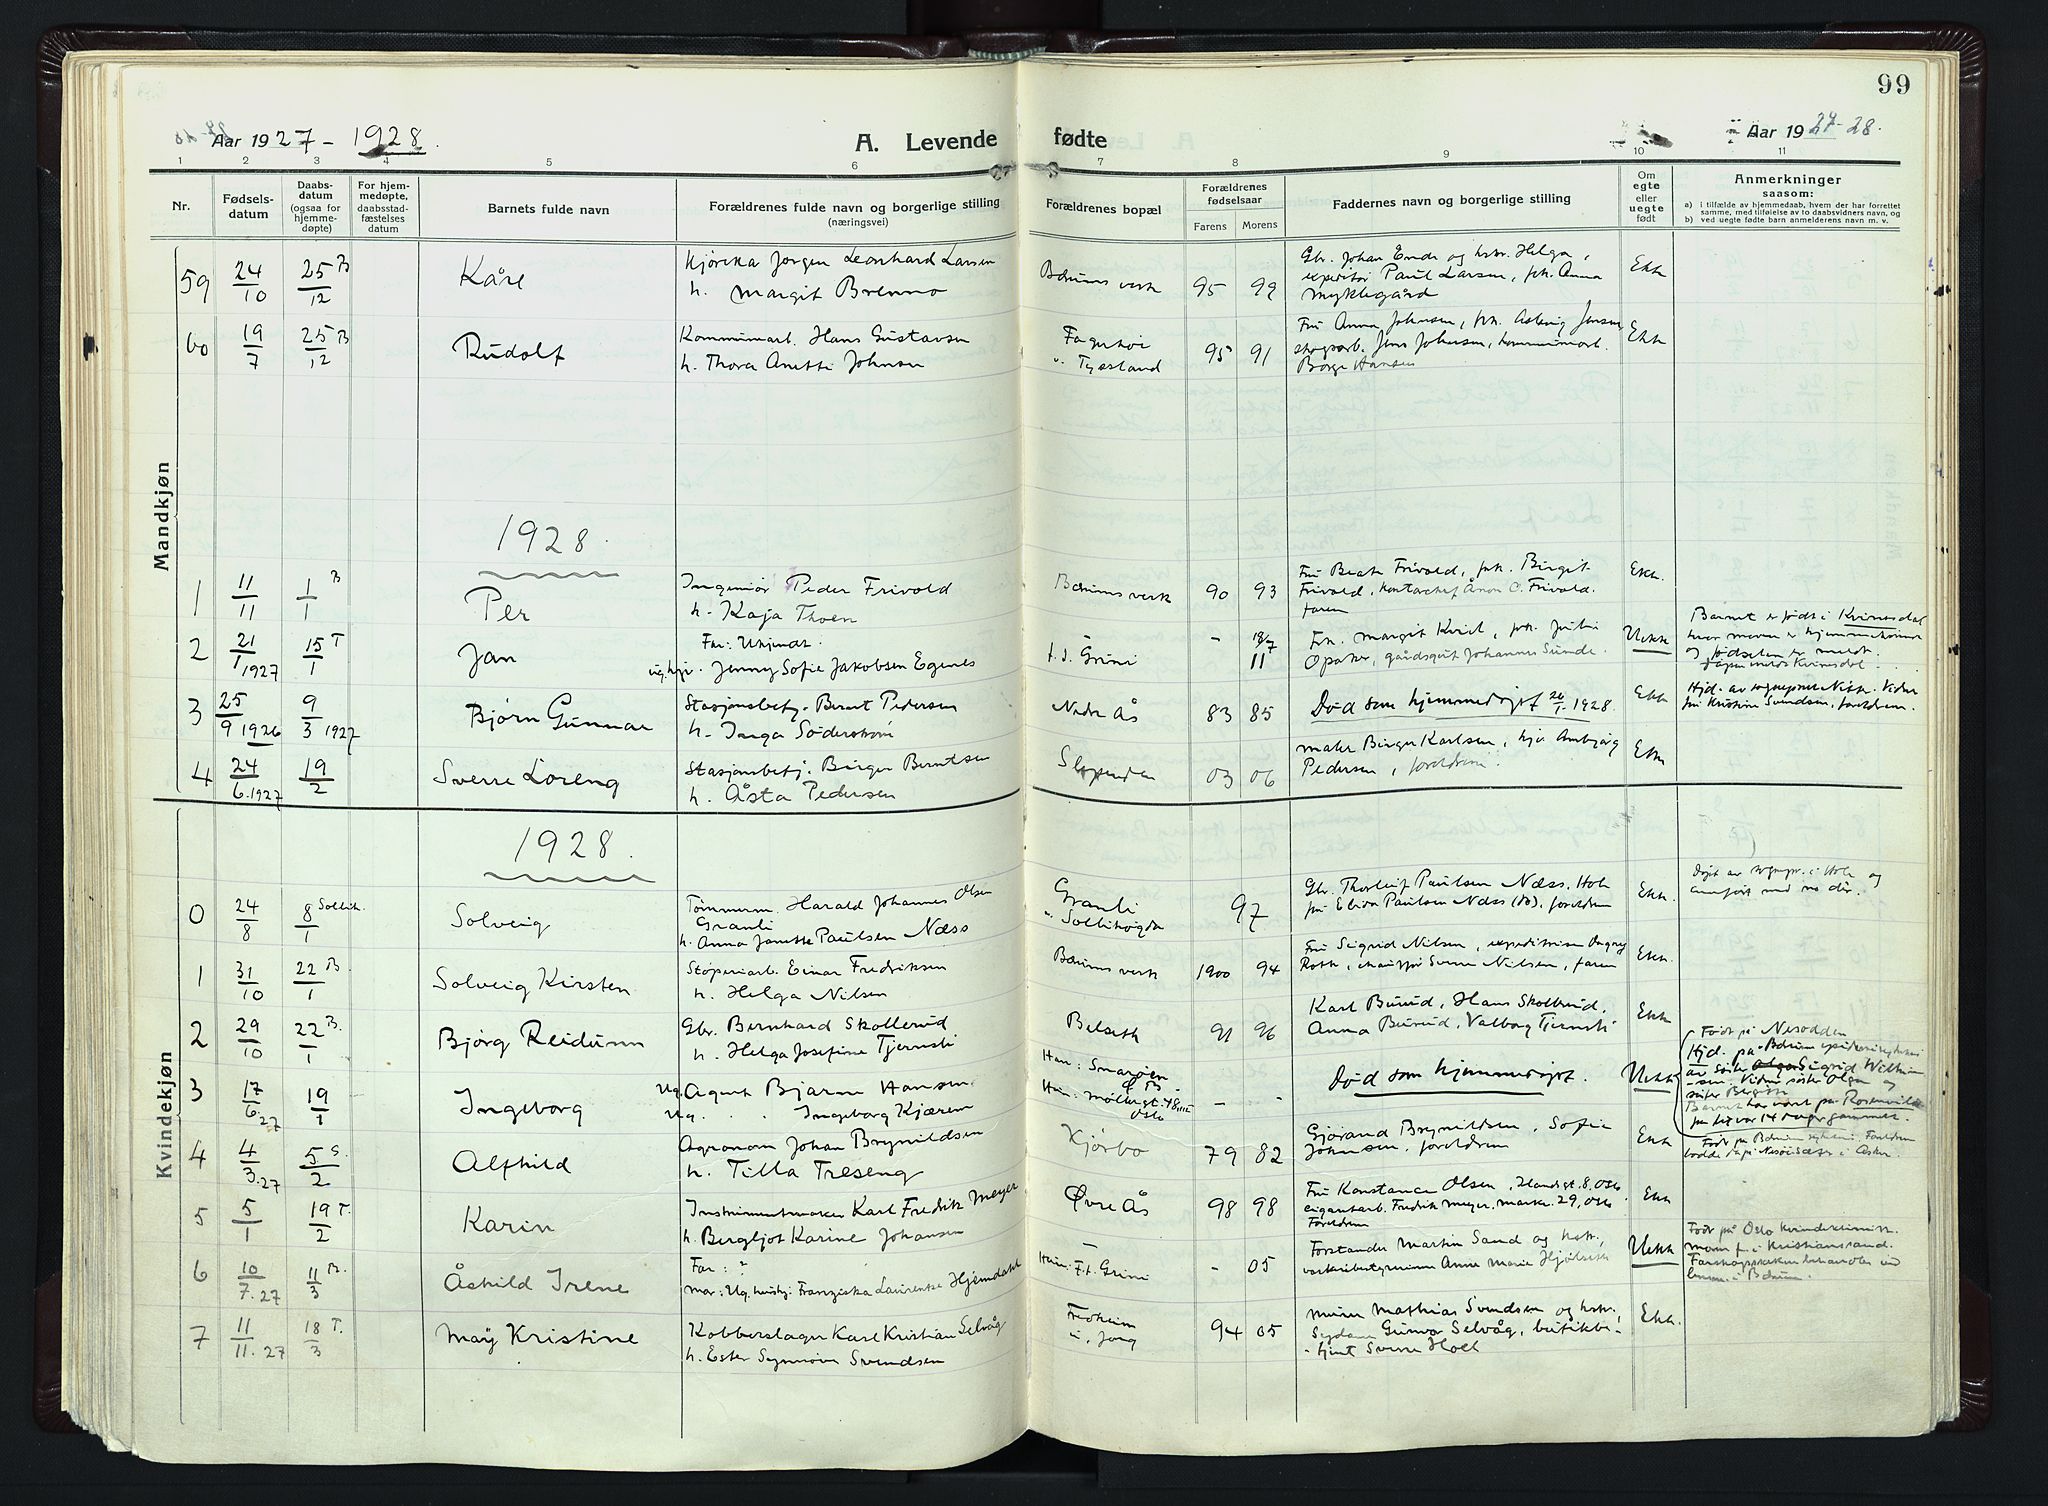 99
Aar 1927 - 1928.
A. Levende
fødte
Aar 1927-28.
1 2 3 4 5 6 7 8 9 10 11
Nr.
Fødsels-
datum
Daabs-
datum
(ogsaa for
hjemme-
døpte)
For hjem-
medøpte,
daabsstad-
fæstelses
datum
Barnets fulde navn
Forældrenes fulde navn og borgerlige stilling
(næringsvei)
Forældrenes bopæl
Forældrenes
fødselsaar
Farens
Morens
Faddernes navn og borgerlige stilling
Om
egte
eller
uegte
født
Anmerkninger
saasom:
a) i tilfælde av hjemmedaab, hvem der har forrettet
samme, med tilføielse av to daabsvidners navn, og
b) ved uegte fødte barn anmelderens navn m. v.
Mandkjøn
59 24/10 25/12 B Kåre
Jørgen Leonhard Larsen
h. Margit Brenno
Bærums verk 95 99
Gbr. Johan Ende og hstr. Helga,
expeditør Paul Larsen, frk. Anna
Myklegård
Ekte
60 19/7 25/12 B Rudolf
Kommunearb. Hans Gustavsen
h. Thora Anette Johnsen
95 91
Fru Anna Johnsen, frk. Jensen
skogsarb. Jens Johnsen, kommunearb.
Borge Hansen
Ekte
1928.
1 11/11 1/1 B Per
Ingeniør Peder Frivold
h. Kaja Thoen
Bærums verk 90 93
Fru Beate Frivold, frk. Birgit
Frivold, kontorchef C. Frivold.
faren
Ekte.
2 21/1 1927 15/1 T Jan
Far: Ukjendt.
ug. hpr. Jenny Sofie Jakobsen Egenes
f. t. Grini - 18/7 11
Frk. Margit Kvid, frk. Julie
Opaker, gårdsgut Johannes Sunde.
Uekte
Barnet er født i Kvinesdal
hvor moren er hjemmehørende
og fødselen er meldt.
3 25/9 1926 9/3 1927 Bjørn Gunnar
Stasjonsbetj. Bernt Pedersen
h. Inga Söderström
Nedre Ås 83 85
Død som hjemmedøpt 26/1 1928.
Ekte
Hjd. av sogneprest
fru Kristine Svendsen, foreldrene.
4 24/6.1927 19/2 Sverre Loreng
Stasjonsbetj. Birger Berntsen
h. Åsta Pedersen
Slependen 03 06
maler Birger Karlsen,
Pedersen, foreldrene.
Ekte
Kvindekjøn
1928.
0 24/8 8/1 Sollih. Solveig
Tømmerm. Harald Johannes Olsen
Granli
h. Anna Janette Paulsen Næss
Granli
v. Sollihøgda 97
Gbr. Thorleif Paulsen Næss, Hole
fru Elida Paulsen Næss (do), foreldrene
Ekte.
Døpt av sognepr. i Hole og
anført med no der.
1 31/10 22/1 B. Solveig Kirsten
Støperiarb. Einar Fredriksen
h. Helga Nilsen
Bærums verk 1900 94
Fru Sigrid Nilsen, expeditrise Dagny
Roth, chauffør Sverre Nilsen, faren
Ekte.
2 29/10 22/1 B. Bjørg Reidunn
Gbr. Bernhard Skollerud
h. Helga Josefine Tjernsli
Belseth 91 96
Karl Burud, Hans Skollerud,
Anna Burud, Valborg Tjernsli
Ekte
3 17/6.27 19/1 Ingeborg
Ug. Agent Bjarne Hansen.
Ug. Ingeborg Kjærem
Han: Snarøen
Oslo
- -
Død som hjemmedøpt.
Uekte
Født på Nesodden
Hjd. på Bærum
av søster Sigrid
Vidne søster Olga og
søster Bergitte
Barnet har vært på Rosenvilde
4 4/3.27 5/2 Alfhild
Agronom Johan Brynildsen
h. Tilla Treseng
Kjørbo 79 82
Gjørand Brynildsen, Sofie
Johnsen, foreldrene
Ekte
Født på Bærum sykehus. Foreldrene
bodde da på Nesøi Sæter i Asker.
5 5/1 19/2 T. Karin
Instrumentmaker Karl Fredrik Meyer
h. Bergljot Karine Johansen
Øvre Ås 98 98
Fru Konstance Olsen, 8, Oslo
sigararb. Fredrik Meyer, 29, Oslo
Foreldrene
Ekte
6 10/7.27 11/3 B. Åshild Irene
Far: ?
Mor: Ug. hushj. Franziska Laurentse Hjemdahl
F. t. Grini - 05
Forstander Martin Sand og hstr.,
Anne Marie Hjølseth
Uekte
Født på Oslo kvindeklinikk.
Moren f. i Kristiansand.
7 11/11.27 18/3 T. May Kristine
Kobberslager Karl Kristian Selvåg
h. Ester Synnøve Svendsen
Fredheim
v. Jong 94 05
Murer Mathias Svendsen og hstr.,
Gunvor Selvåg, butikkbe-
tjent Sverre Holt
Ekte.